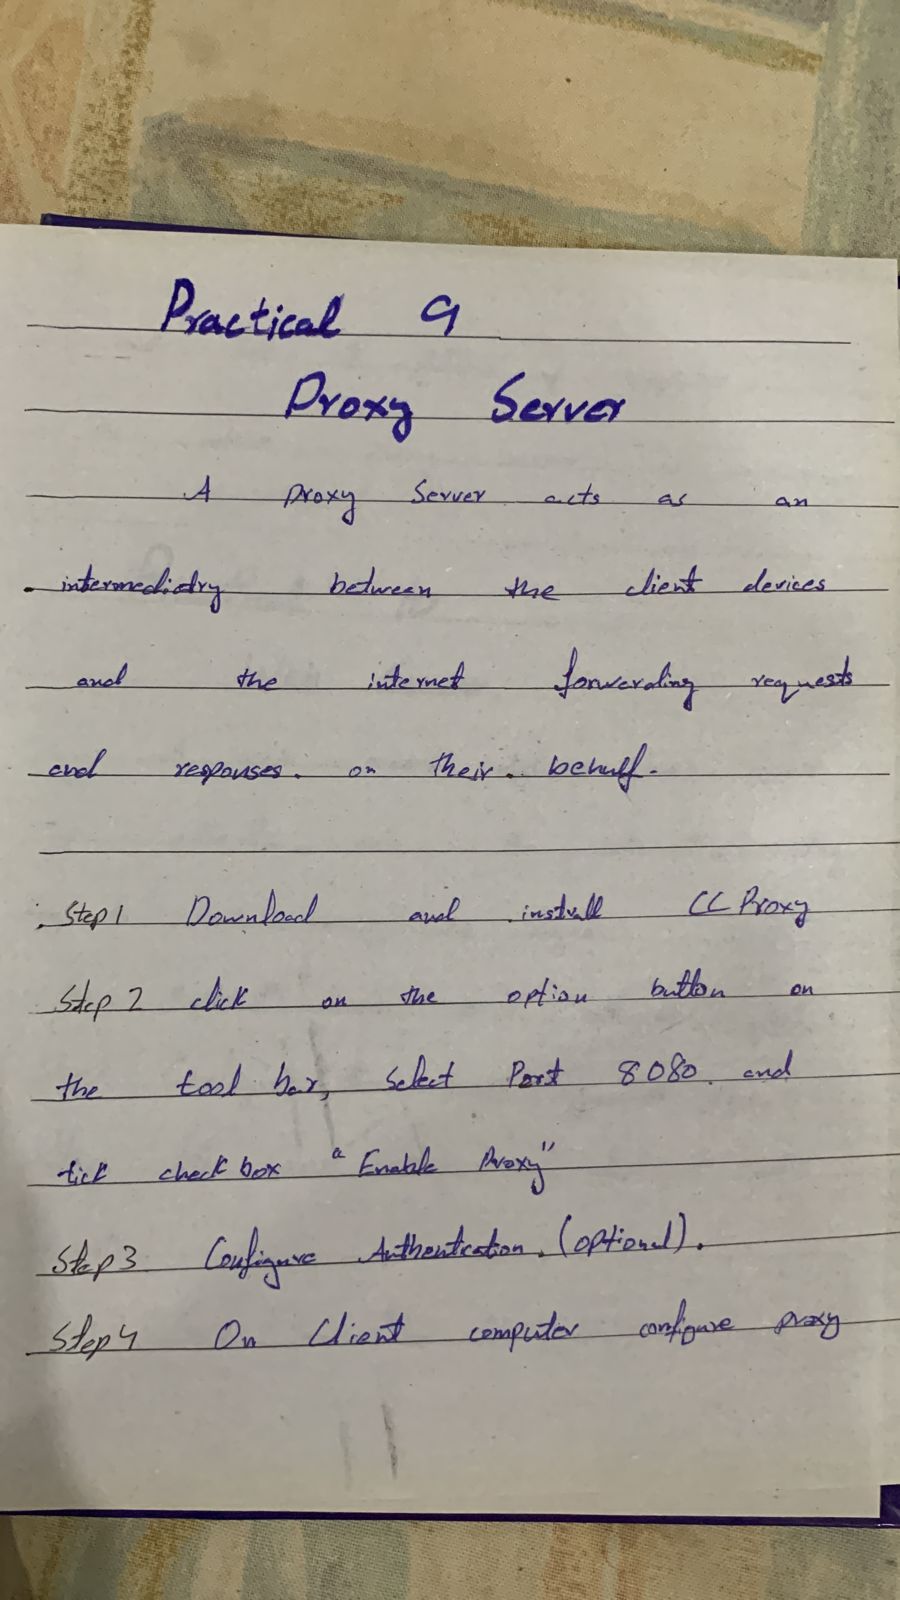 Practical 9
Proxy Server
A proxy Server acts as an
intermediatry between the client devices
and the internet forwerding requests
and responses. on their. behalf.
Step 1 Download and install CC Proxy
Step 2 click on the option button on
the tool bar, Select Port 8080. and
tick check box "Enable Proxy"
Step 3 Configure Authentication. (optional).
Step 4 On Client computer configure proxy